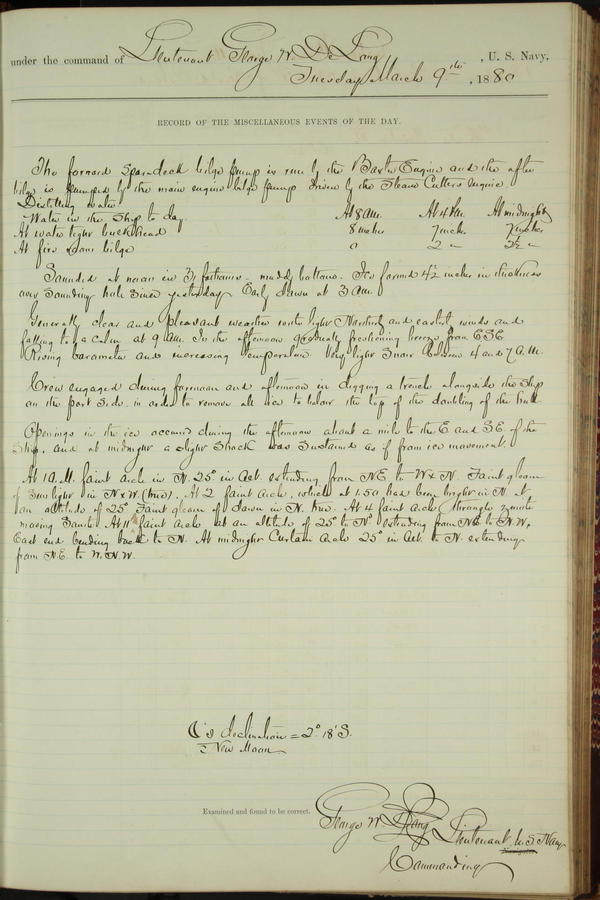 under the command of Lieutenant George W. De Long, U. S. Navy,
Tuesday March 9th, 1880
RECORD OF THE MISCELLANEOUS EVENTS OF THE DAY.
The forward spar-deck bilge pump is run by the Baxter Engine and the after
bilge is pumped by the main engine bilge pump driven by the Steam Cutter's engine.
Distilling water
Water in the Ship to day At 8 AM. At 4 P.M. At midnight
At water tight bulkhead 8 inches 7 inches 7 inches
At fire room bilge 0 2 " "
Sounded at noon in 31 fathoms - muddy bottom. Ice formed 4½ inches in thickness
over Sounding hole since yesterday. Early dawn at 3 A.M.
Generally clear and pleasant weather with light Northerly and easterly winds and
falling to a calm at 9 A.M. In the afternoon gradually freshening breeze from ESE
Rising barometer and increasing temperature. Very light snow between 4 and 7 A.M.
Crew engaged during forenoon and afternoon in digging a trench alongside the Ship
on the port side in order to remove all ice to below the top of the doubling of the hull.
Openings in the ice occurred during the afternoon about a mile to the E and SE of the
Ship, and at midnight a slight shock was sustained as if from ice movement.
At 1 A.M. faint arch in N. 25° in alt. extending from NE to W & N. Faint gleam
of Sunlight in N x W (true). At 2 faint arch, which at 1.50 had been bright in N at
an altitude of 25° Faint gleam of dawn in N. true. At 4 faint arch through zenith
moving South. At 11 faint arch at an altitude of 25° to N° extending from NE to N.W,
East end bending back to N. At midnight Curtain arch 25° in Alt. to N. extending
from N.E. to W.N.W.
☾'s declination = 2° 18' S.
New Moon
Examined and found to be correct.
George W. De Long Lieutenant U.S. Navy
Commanding